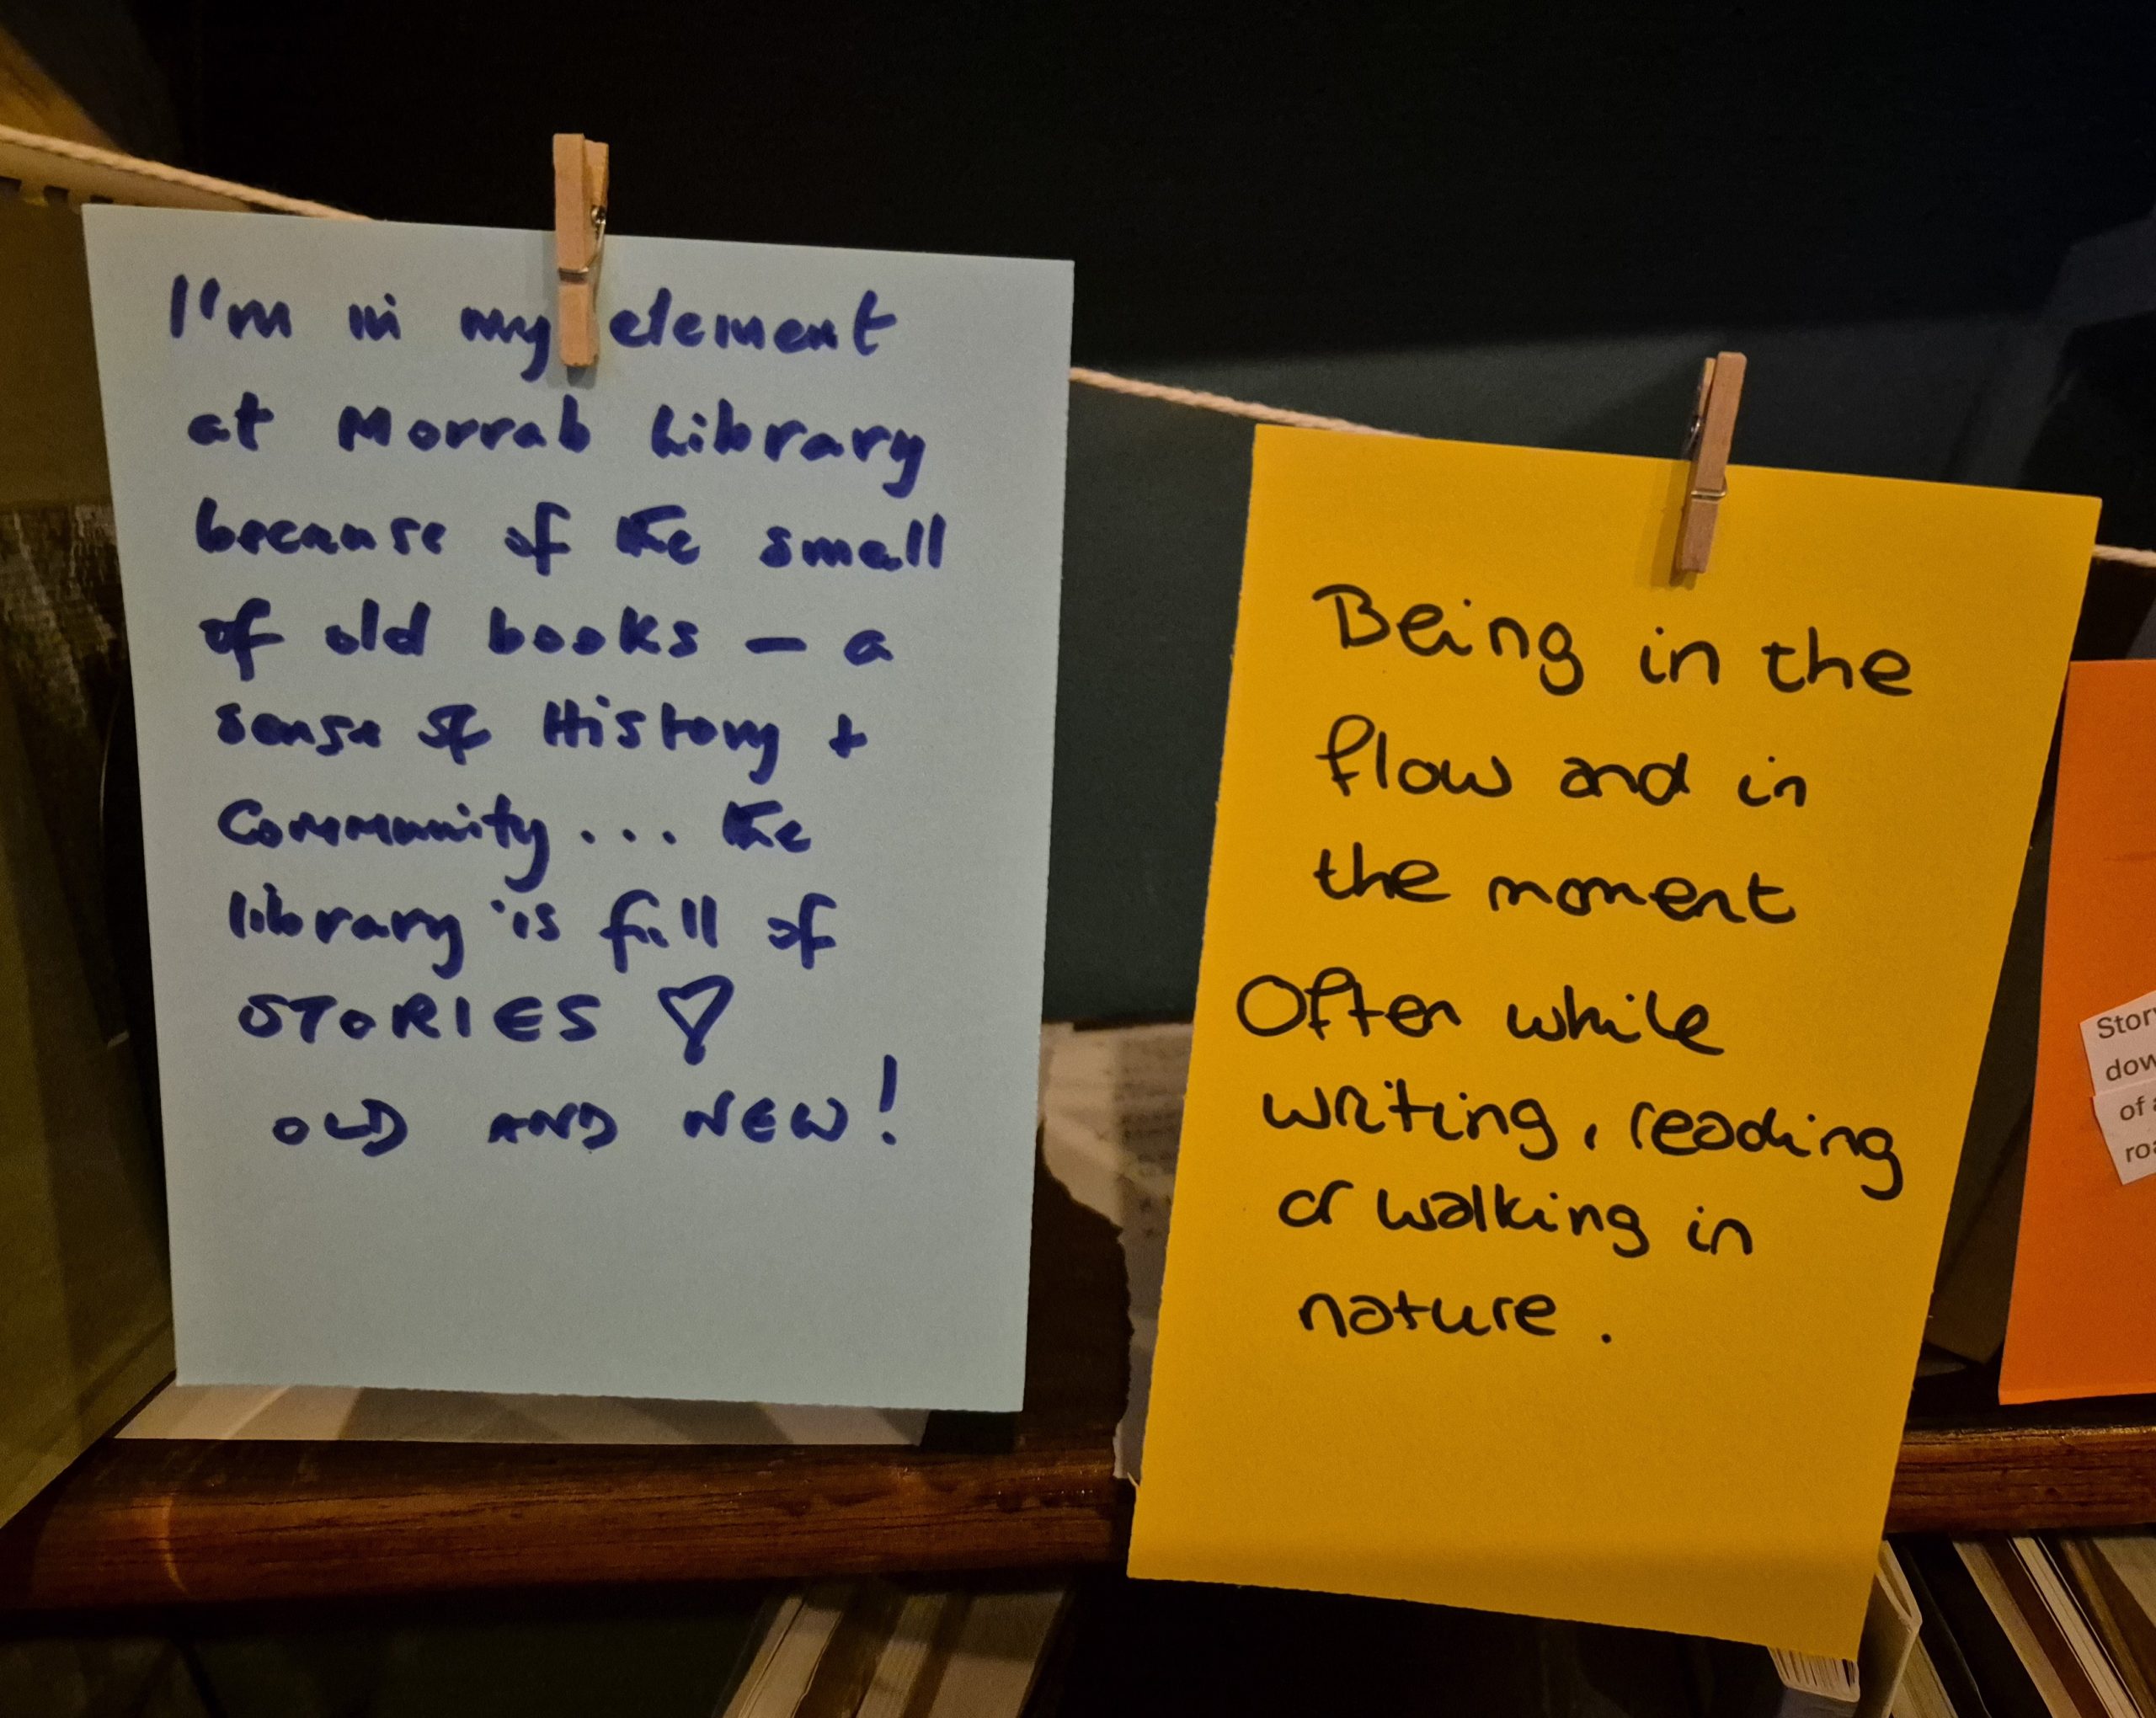 I'm in my element
at Morrab Library
because of the small
of old books – a
sense of History +
Community... the
library is full of
STORIES ♡
OLD AND NEW!
Being in the
flow and in
the moment
Often while
writing, reading
or walking in
nature.
Stor
dow
of a
roa